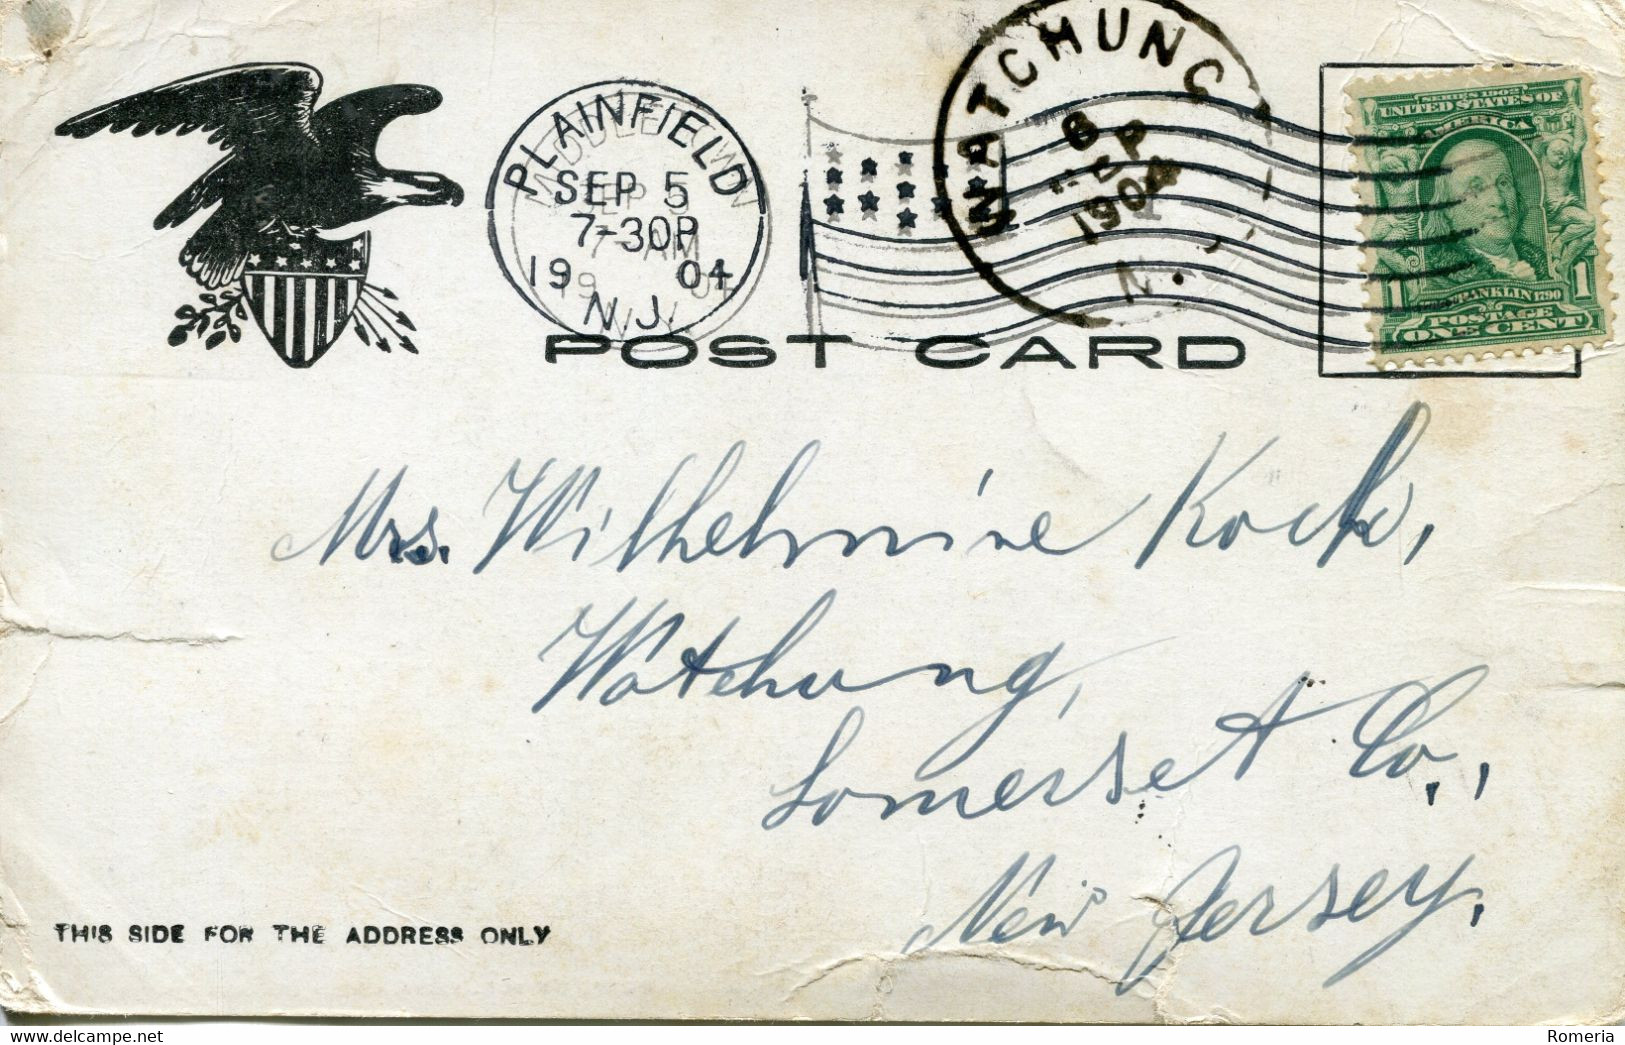 WATCHUNG
6
SEP
1904
N.J.
PLAINFIELD
SEP 5
7-30P
19 04
N.J.
SERIES 1902
UNITED STATES OF
AMERICA
1 FRANKLIN 1790 1
POSTAGE
ONE CENT
POST CARD
Mrs. Wilhelmine Koch,
Watchung,
Somerset Co.,
New Jersey.
THIS SIDE FOR THE ADDRESS ONLY
www.delcampe.net
Romeria